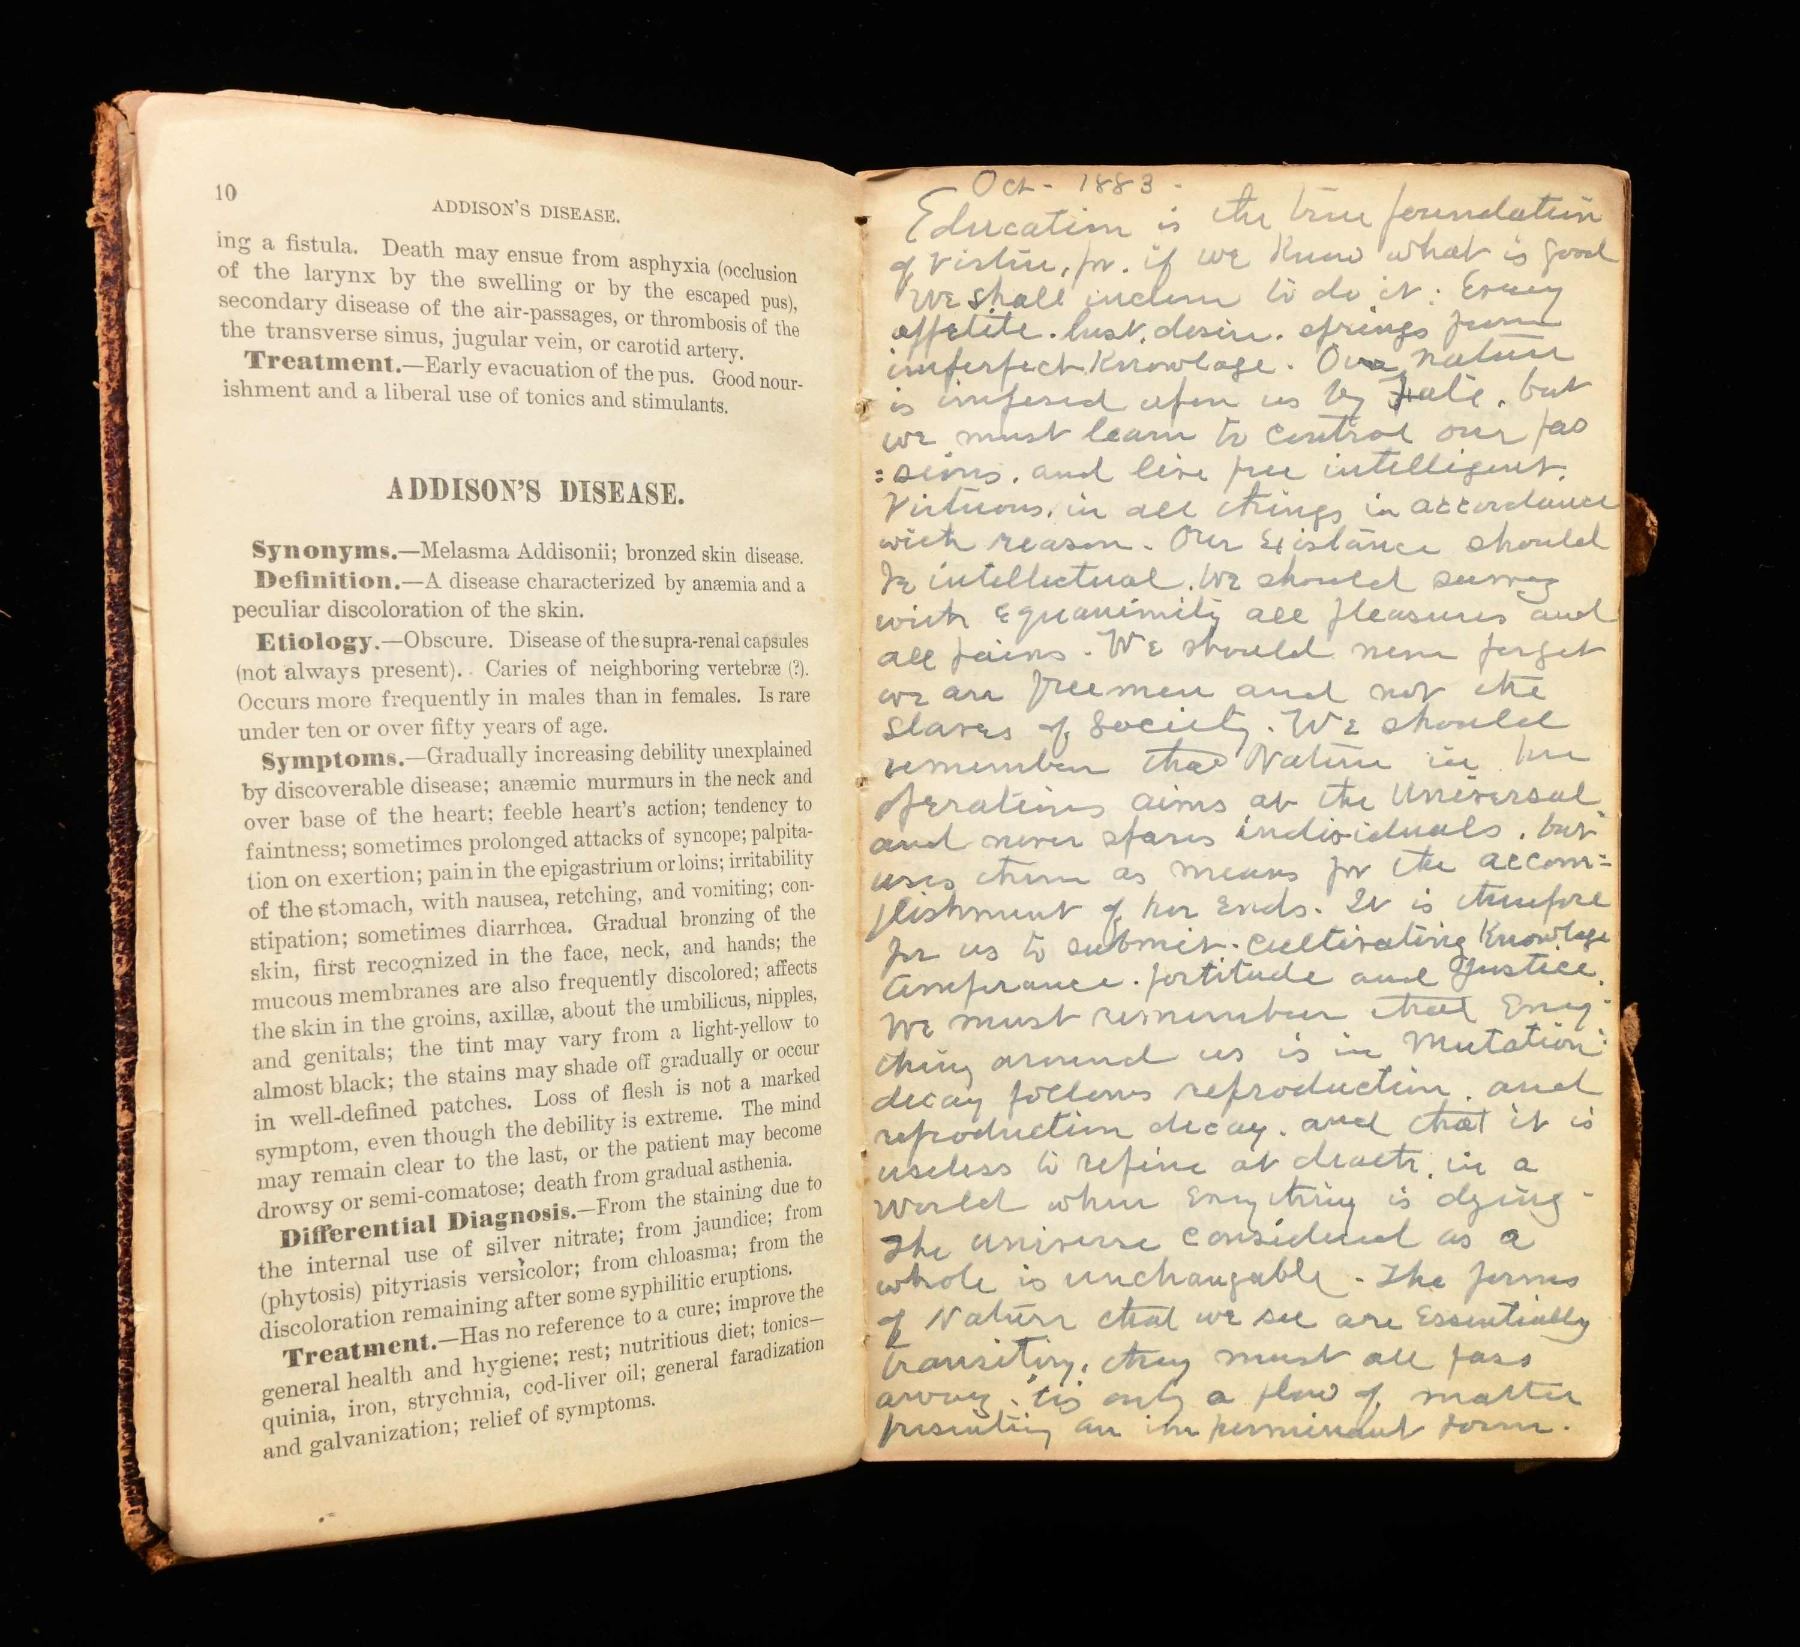 10
ADDISON'S DISEASE.
ing a fistula. Death may ensue from asphyxia (occlusion
of the larynx by the swelling or by the escaped pus),
secondary disease of the air-passages, or thrombosis of the
the transverse sinus, jugular vein, or carotid artery.
Treatment.—Early evacuation of the pus. Good nour-
ishment and a liberal use of tonics and stimulants.
ADDISON'S DISEASE.
Synonyms.—Melasma Addisonii; bronzed skin disease.
Definition.—A disease characterized by anæmia and a
peculiar discoloration of the skin.
Etiology.—Obscure. Disease of the supra-renal capsules
(not always present). Caries of neighboring vertebræ (?).
Occurs more frequently in males than in females. Is rare
under ten or over fifty years of age.
Symptoms.—Gradually increasing debility unexplained
by discoverable disease; anæmic murmurs in the neck and
over base of the heart; feeble heart's action; tendency to
faintness; sometimes prolonged attacks of syncope; palpita-
tion on exertion; pain in the epigastrium or loins; irritability
of the stomach, with nausea, retching, and vomiting; con-
stipation; sometimes diarrhœa. Gradual bronzing of the
skin, first recognized in the face, neck, and hands; the
mucous membranes are also frequently discolored; affects
the skin in the groins, axillæ, about the umbilicus, nipples,
and genitals; the tint may vary from a light-yellow to
almost black; the stains may shade off gradually or occur
in well-defined patches. Loss of flesh is not a marked
symptom, even though the debility is extreme. The mind
may remain clear to the last, or the patient may become
drowsy or semi-comatose; death from gradual asthenia.
Differential Diagnosis.—From the staining due to
the internal use of silver nitrate; from jaundice; from
(phytosis) pityriasis versicolor; from chloasma; from the
discoloration remaining after some syphilitic eruptions.
Treatment.—Has no reference to a cure; improve the
general health and hygiene; rest; nutritious diet; tonics—
quinia, iron, strychnia, cod-liver oil; general faradization
and galvanization; relief of symptoms.
Oct - 1883 -
Education is the true foundation
of virtue, for. if we know what is good
We shall incline to do it: Every
appetite. lust. desire. springs from
imperfect Knowlage. Our nature
is imposed upon us by Fate. but
we must learn to control our pas
=sions. and live free intelligent.
Virtuous. in all things in accordance
with reason - Our Existance should
be intellectual. We should survey
with Equanimity all pleasures and
all pains - We should never forget
we are freemen and not the
Slaves of Society. We should
remember that Nature in her
operations aims at the Universal
and never spares individuals. but
uses them as means for the accom=
plishment of her Ends. It is therefore
for us to submit. cultivating Knowlage
temperance. fortitude and Justice.
We must remember that Every
thing around us is in Mutation:
decay follows reproduction. and
reproduction decay. and that it is
useless to repine at death. in a
World when Every thing is dying -
The universe considered as a
whole is unchangable - The forms
of Nature that we see are Essentially
transitory. they must all pass
away. 'tis only a flow of matter
presenting an impermenant form.